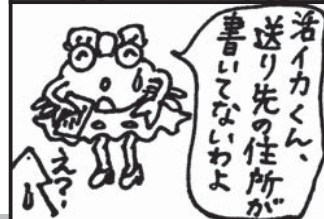 活イカくん、
送り先の住所が
書いてないわよ
え?!